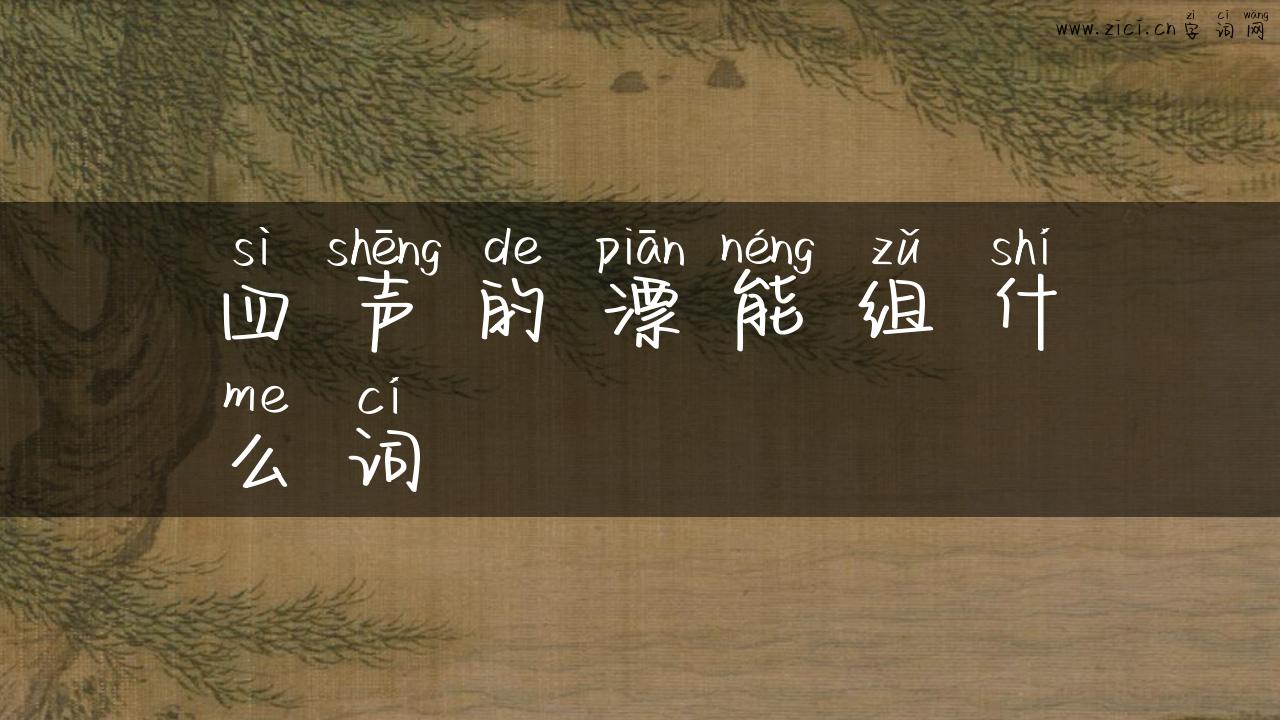 zì cí wǎng
www.zici.cn 字词网
sì shēng de piān néng zǔ shí
四声的漂能组什
me cí
么词